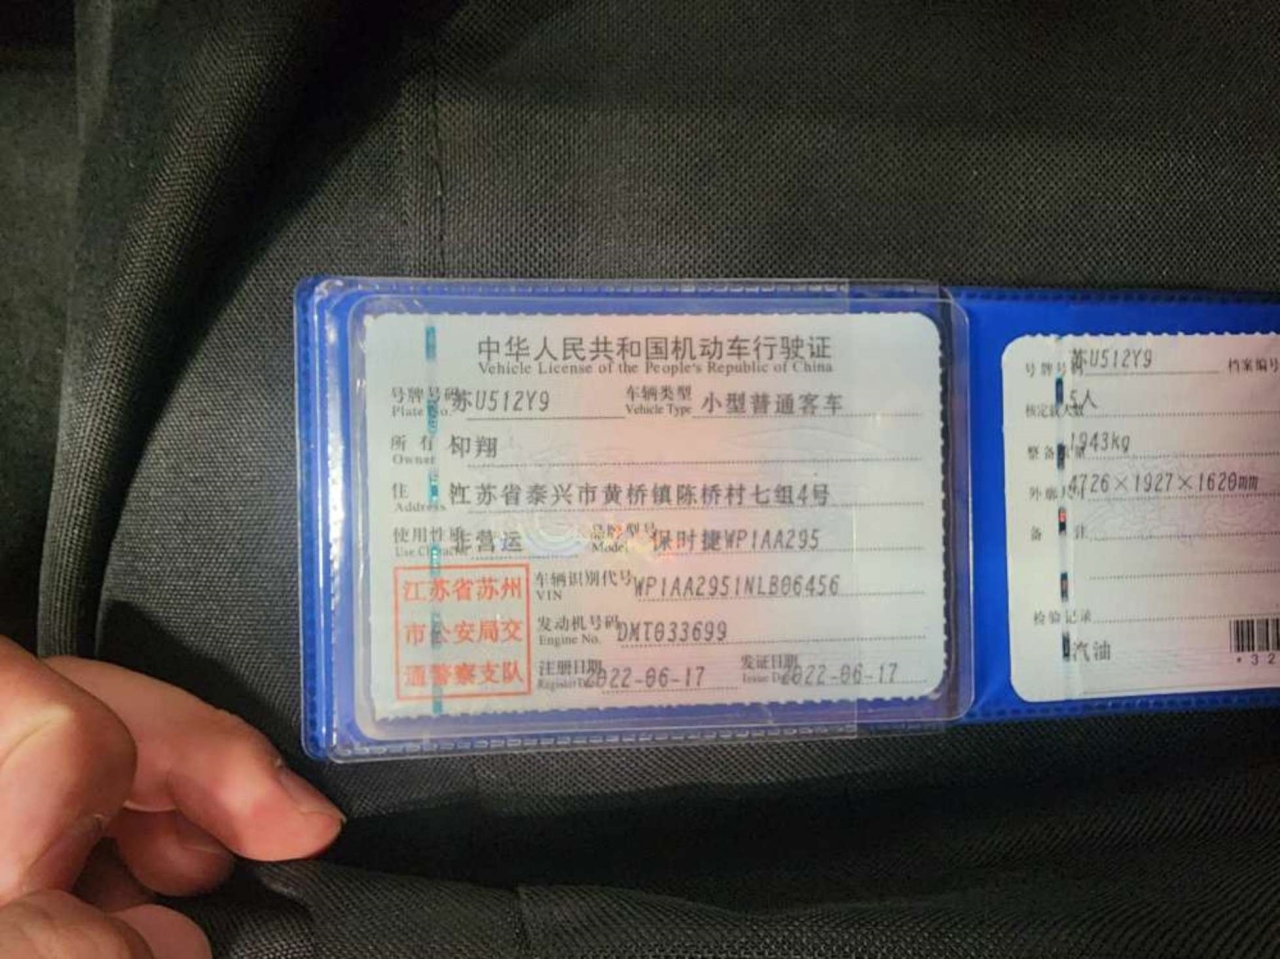 中华人民共和国机动车行驶证
Vehicle License of the People's Republic of China
号牌号码 苏U512Y9 车辆类型 小型普通客车
Plate No. Vehicle Type
所有 印翔
Owner
住 江苏省泰兴市黄桥镇陈桥村七组4号
Address
使用性质 非营运 品牌型号 保时捷WP1AA295
Use Character Model
江苏省苏州
市公安局交
通警察支队
车辆识别代号 WP1AA2951NLB06456
VIN
发动机号码 DMT033699
Engine No.
注册日期 2022-06-17 发证日期 2022-06-17
Register Date Issue Date
号牌号码 苏U512Y9 档案编号
核定载人数 5人
整备质量 1943kg
外廓尺寸 4726×1927×1620mm
备 注
检验记录
汽油
*32